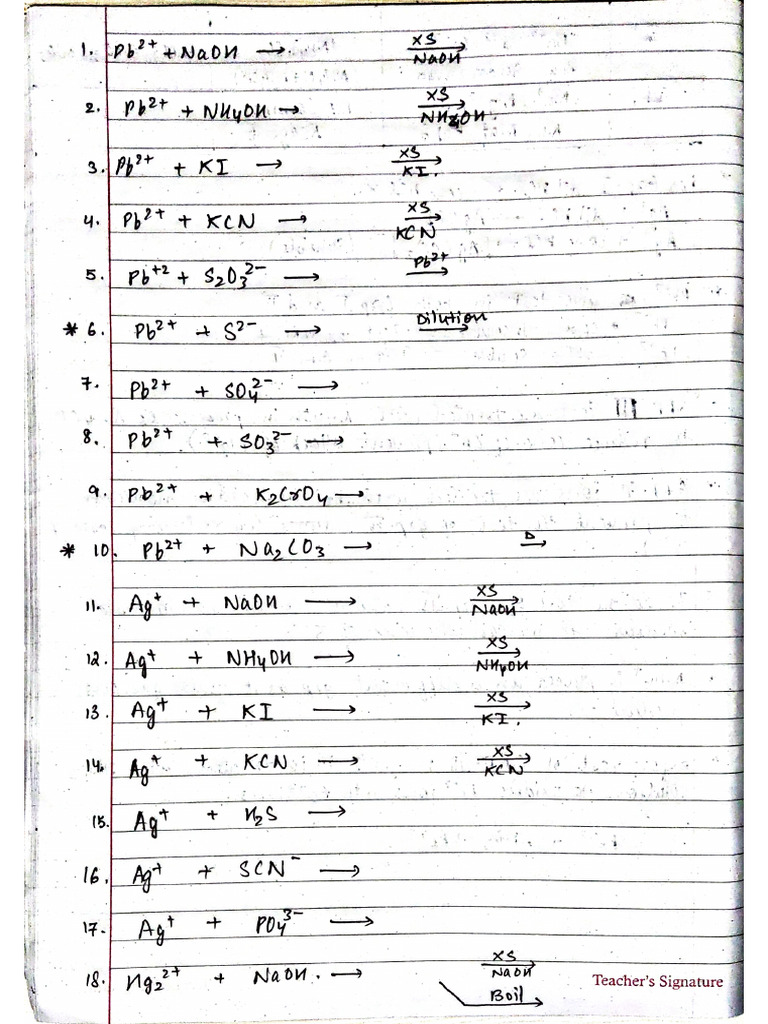 1. Pb²⁺ + NaOH → XS NaOH →
2. Pb²⁺ + NH4OH → XS NH4OH →
3. Pb²⁺ + KI → XS KI. →
4. Pb²⁺ + KCN → XS KCN →
5. Pb⁺² + S₂O₃²⁻ → Pb²⁺ →
* 6. Pb²⁺ + S²⁻ → Dilution →
7. Pb²⁺ + SO₄²⁻ →
8. Pb²⁺ + SO₃²⁻ →
9. Pb²⁺ + K₂CrO₄ →
* 10. Pb²⁺ + Na₂CO₃ → Δ →
11. Ag⁺ + NaOH → XS NaOH →
12. Ag⁺ + NH4OH → XS NH4OH →
13. Ag⁺ + KI → XS KI. →
14. Ag⁺ + KCN → XS KCN →
15. Ag⁺ + H₂S →
16. Ag⁺ + SCN⁻ →
17. Ag⁺ + PO₄³⁻ →
18. Hg₂²⁺ + NaOH. → XS NaOH →
Boil →
Teacher's Signature